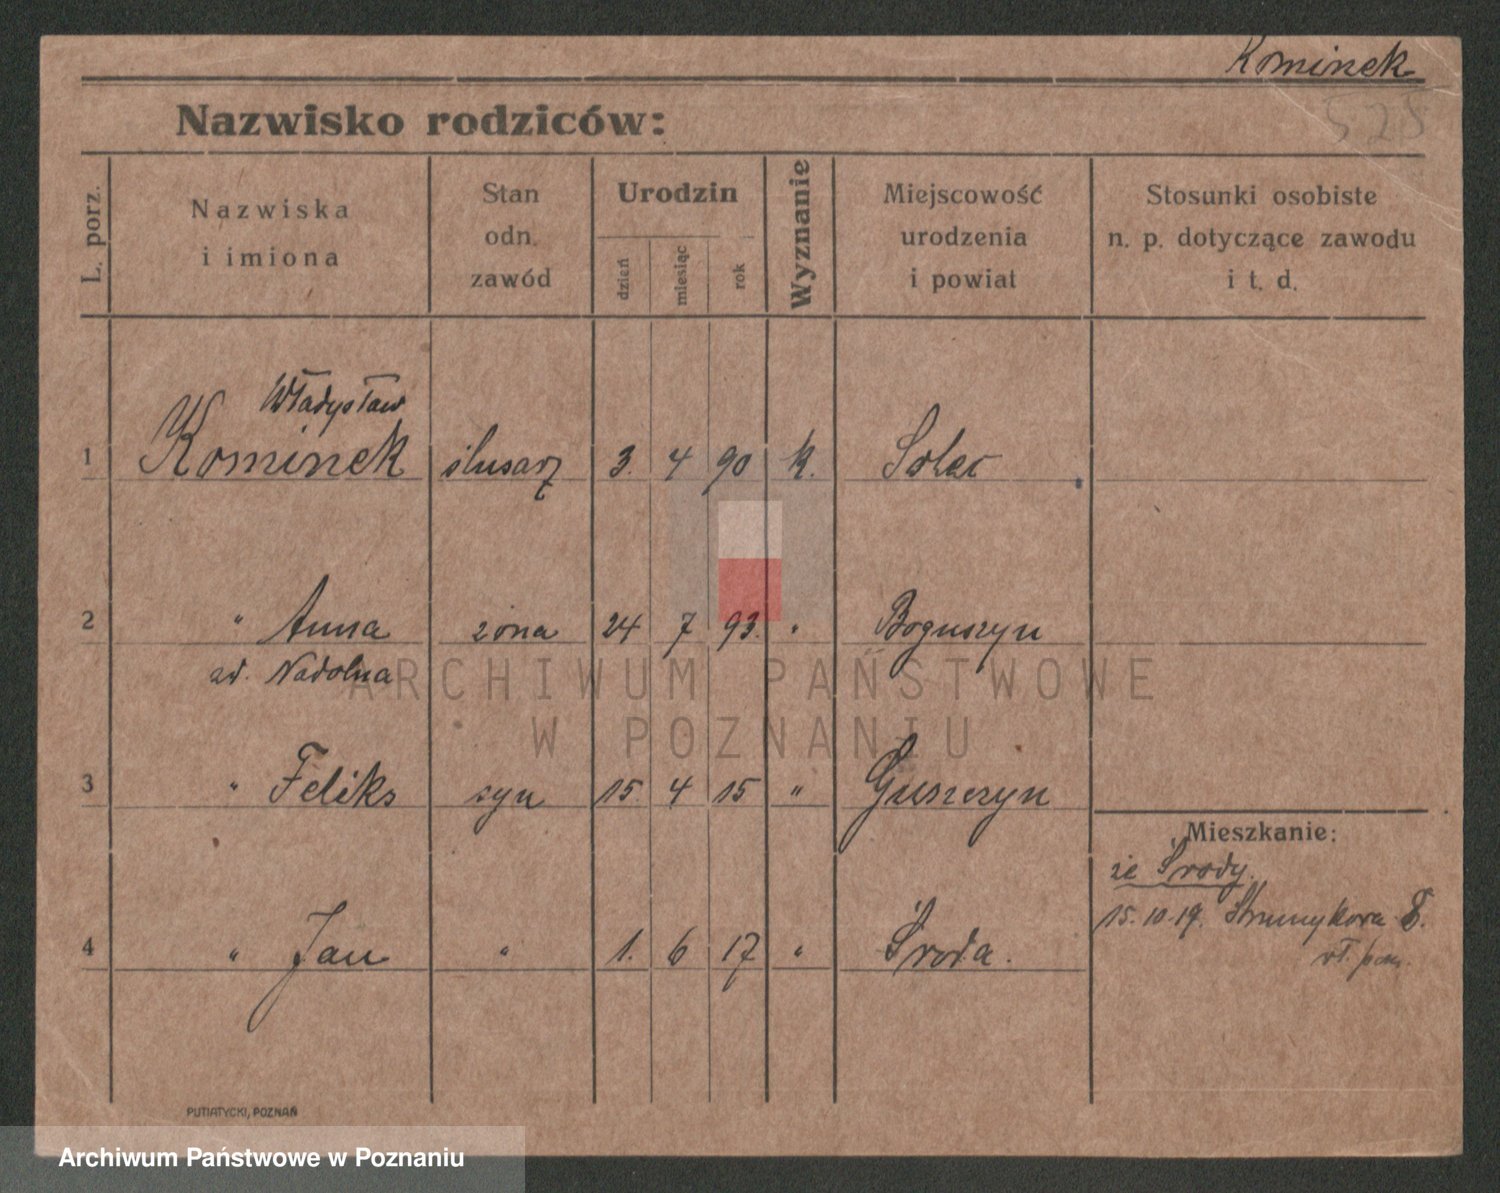 Kominek
525
Nazwisko rodziców:
L. porz.
Nazwiska
i imiona
Stan
odn.
zawód
Urodzin
dzień
miesiąc
rok
Wyznanie
Miejscowość
urodzenia
i powiat
Stosunki osobiste
n. p. dotyczące zawodu
i t. d.
Władysław
1 Kominek ślusarz 3. 4 90 k. Solec
2 " Anna żona 24 7 93. " Boguszyn
ad. Nadolna
ARCHIWUM PAŃSTWOWE
W POZNANIU
3 " Feliks syn 15. 4 15 " Guszczyn
Mieszkanie:
ze Środy.
15.10.19. Strumykowa 8.
4 " Jan " 1. 6 17 " Środa.
PUTIATYCKI, POZNAŃ
Archiwum Państwowe w Poznaniu